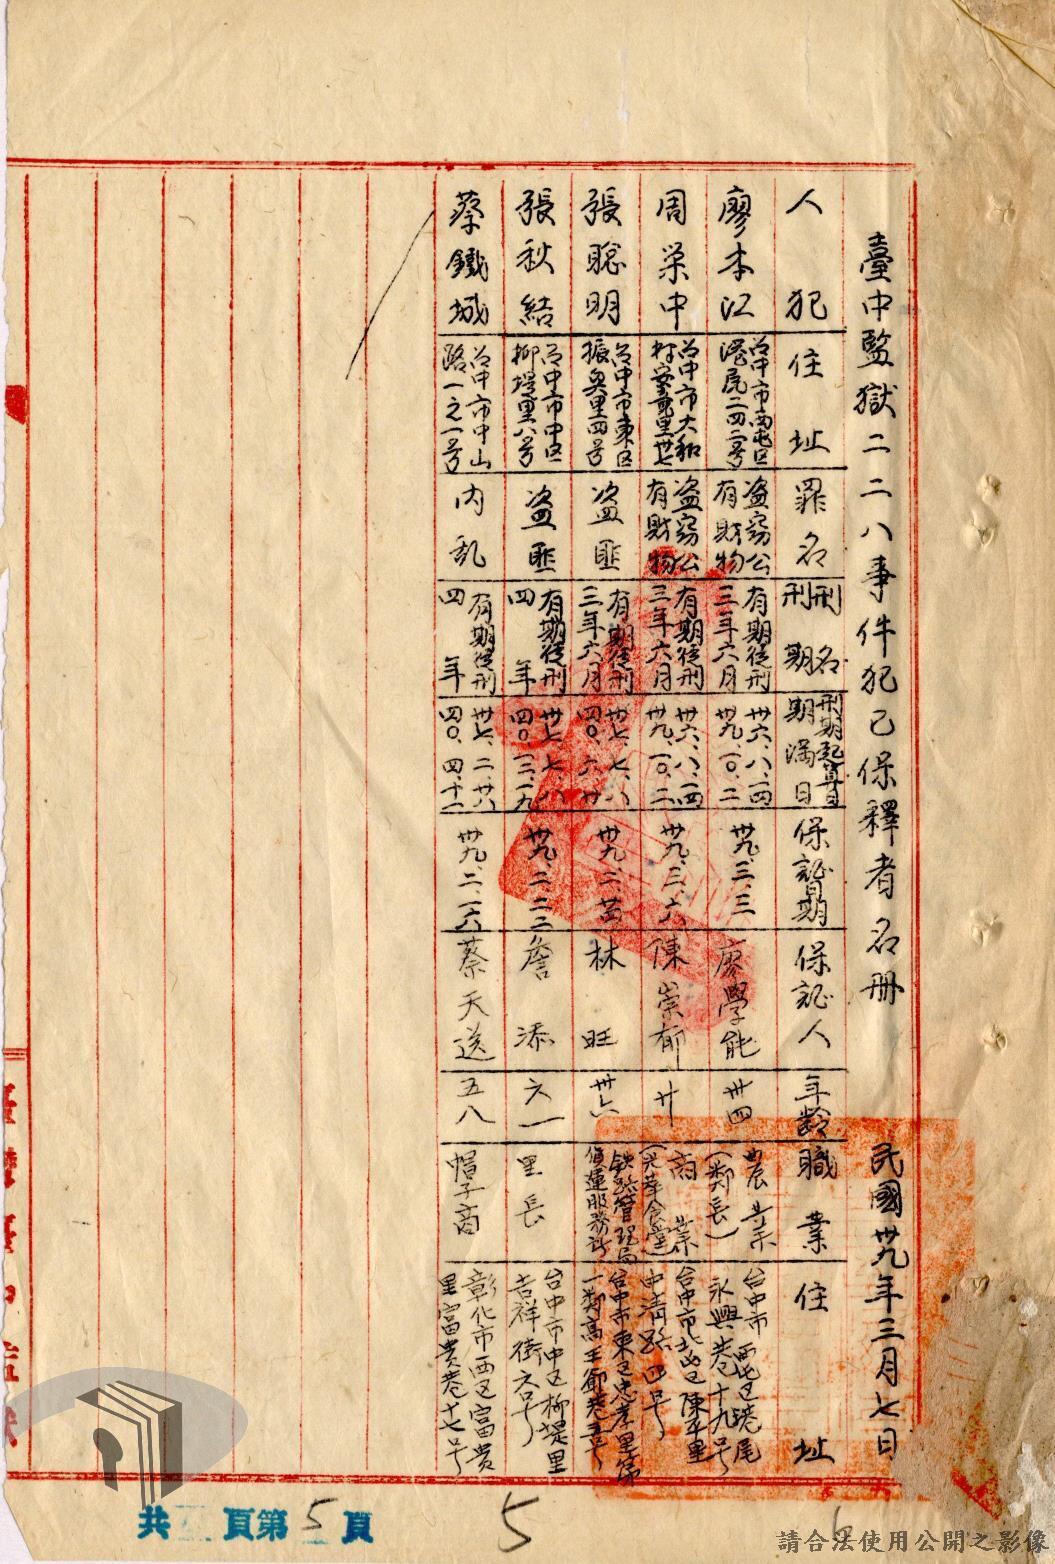 臺中監獄二二八事件犯已保釋者名册 民國卅九年三月七日
人犯 住址 罪名 刑名刑期 刑期起算日期滿日 保証日期 保証人 年齡 職業 住址
廖本江 台中市南屯区溝尾二四二号 盗竊公有財物 有期徒刑三年六月 卅六、八、一四 卅九、一〇、二 卅九、三、三 廖學能 卅四 農業(鄰長) 台中市西屯区港尾永興巷十九号
周荣中 台中市大和村 里廿七 盗竊公有財物 有期徒刑三年六月 卅六、八、一四 卅九、一〇、二 卅九、三、六 陳崇郁 廿 商業 台中市北屯区陳平里中清路四号
張聰明 台中市東区振興里四号 盗匪 有期徒刑三年六月 卅七、七、八 四〇、六、廿 卅九、二、廿四 林旺 卅六 鉄路管理局貨運服務所 台中市東区忠孝里第一鄰高王爺巷五号
張秋結 台中市中区柳堤里八号 盗匪 有期徒刑四年 卅七、七、八 四〇、一二、一九 卅九、二、二二 詹添 六一 里長 台中市中区柳堤里吉祥街六号
蔡鐵城 台中市中山路一之一号 内乱 有期徒刑四年 卅七、二、廿八 四〇、四、十一 卅九、二、一六 蔡天送 五八 帽子商 彰化市西区富貴里富貴巷十七号
共 頁第5頁
5
6
請合法使用公開之影像